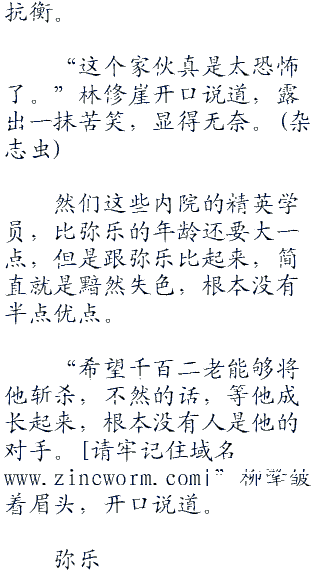 抗衡。
“这个家伙真是太恐怖
了。”林修崖开口说道，露
出一抹苦笑，显得无奈。(杂
志虫)
然们这些内院的精英学
员，比弥乐的年龄还要大一
点，但是跟弥乐比起来，简
直就是黯然失色，根本没有
半点优点。
“希望千百二老能够将
他斩杀，不然的话，等他成
长起来，根本没有人是他的
对手。[请牢记住域名
www.zincworm.com|”柳擎皱
着眉头，开口说道。
弥乐